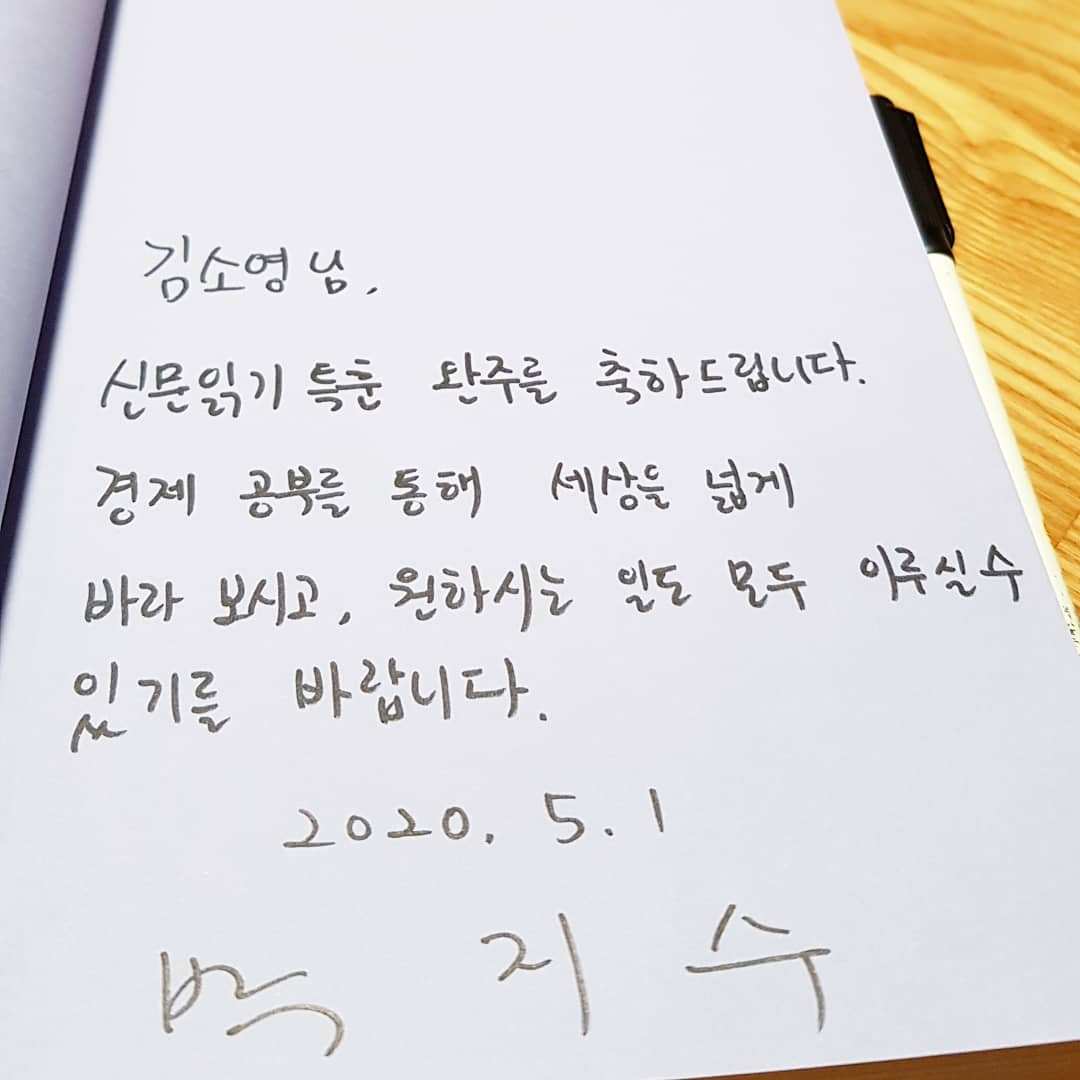 김소영 님,
신문읽기 특훈 완주를 축하드립니다.
경제 공부를 통해 세상을 넓게
바라 보시고, 원하시는 일도 모두 이루실 수
있기를 바랍니다.
2020. 5. 1
박 지 수